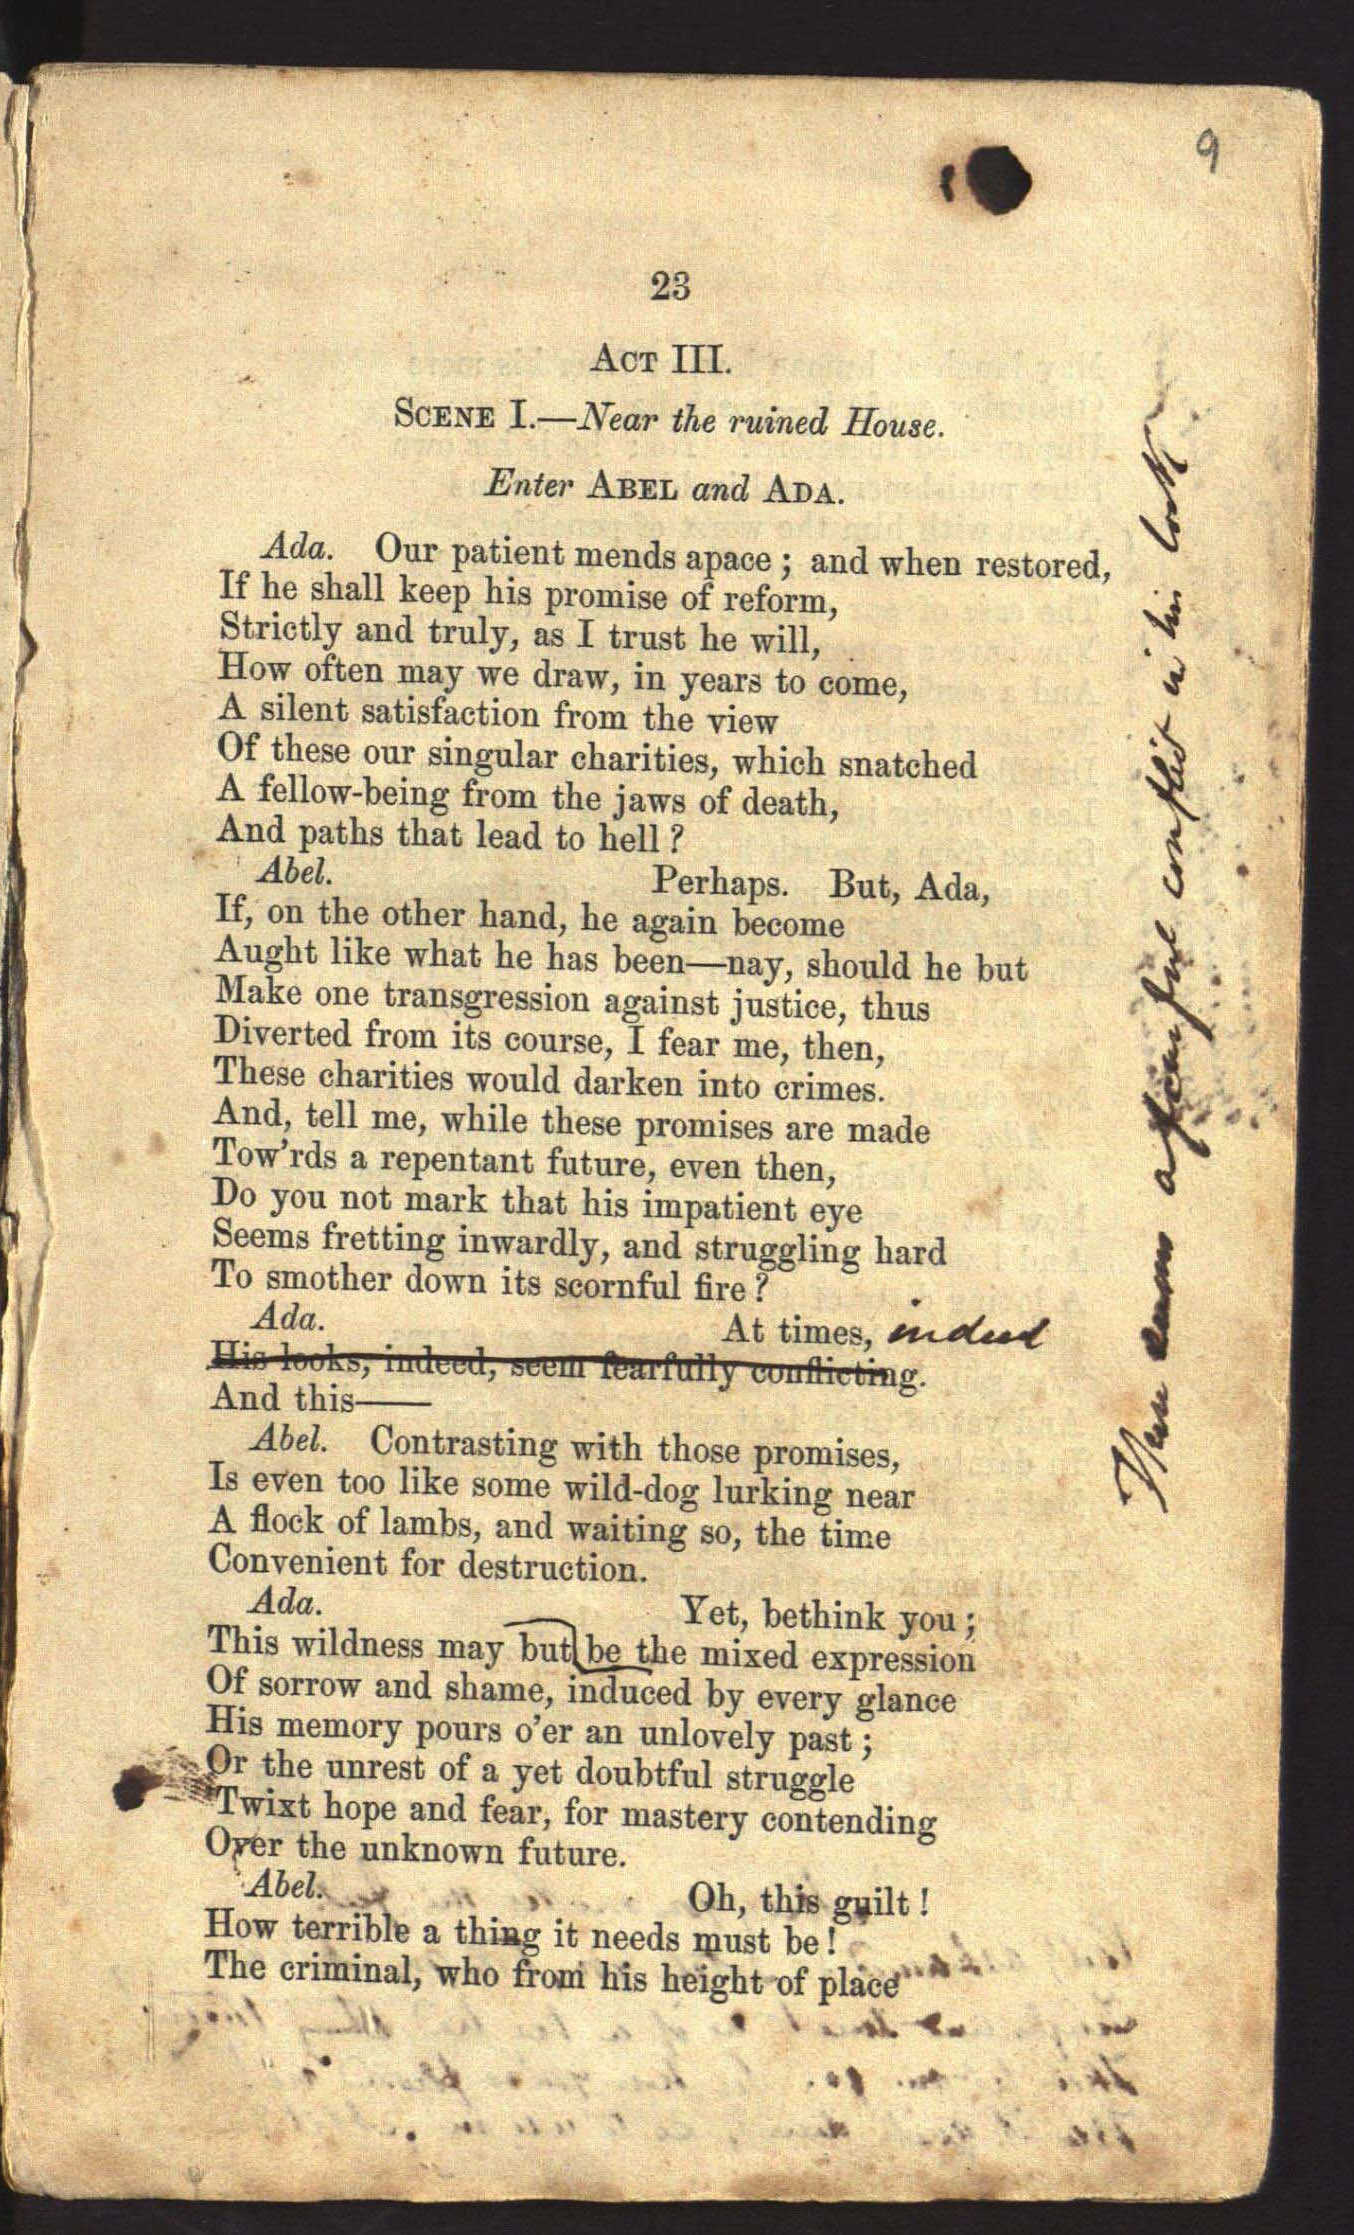 9
23
ACT III.
SCENE I.—Near the ruined House.
Enter ABEL and ADA.
Ada. Our patient mends apace; and when restored,
If he shall keep his promise of reform,
Strictly and truly, as I trust he will,
How often may we draw, in years to come,
A silent satisfaction from the view
Of these our singular charities, which snatched
A fellow-being from the jaws of death,
And paths that lead to hell?
Abel. Perhaps. But, Ada,
If, on the other hand, he again become
Aught like what he has been—nay, should he but
Make one transgression against justice, thus
Diverted from its course, I fear me, then,
These charities would darken into crimes.
And, tell me, while these promises are made
Tow'rds a repentant future, even then,
Do you not mark that his impatient eye
Seems fretting inwardly, and struggling hard
To smother down its scornful fire?
Ada. At times, indeed
His looks, indeed, seem fearfully conflicting.
And this——
Abel. Contrasting with those promises,
Is even too like some wild-dog lurking near
A flock of lambs, and waiting so, the time
Convenient for destruction.
Ada. Yet, bethink you;
This wildness may but be the mixed expression
Of sorrow and shame, induced by every glance
His memory pours o'er an unlovely past;
Or the unrest of a yet doubtful struggle
'Twixt hope and fear, for mastery contending
Over the unknown future.
Abel. Oh, this guilt!
How terrible a thing it needs must be!
The criminal, who from his height of place
a fearful conflict in his look